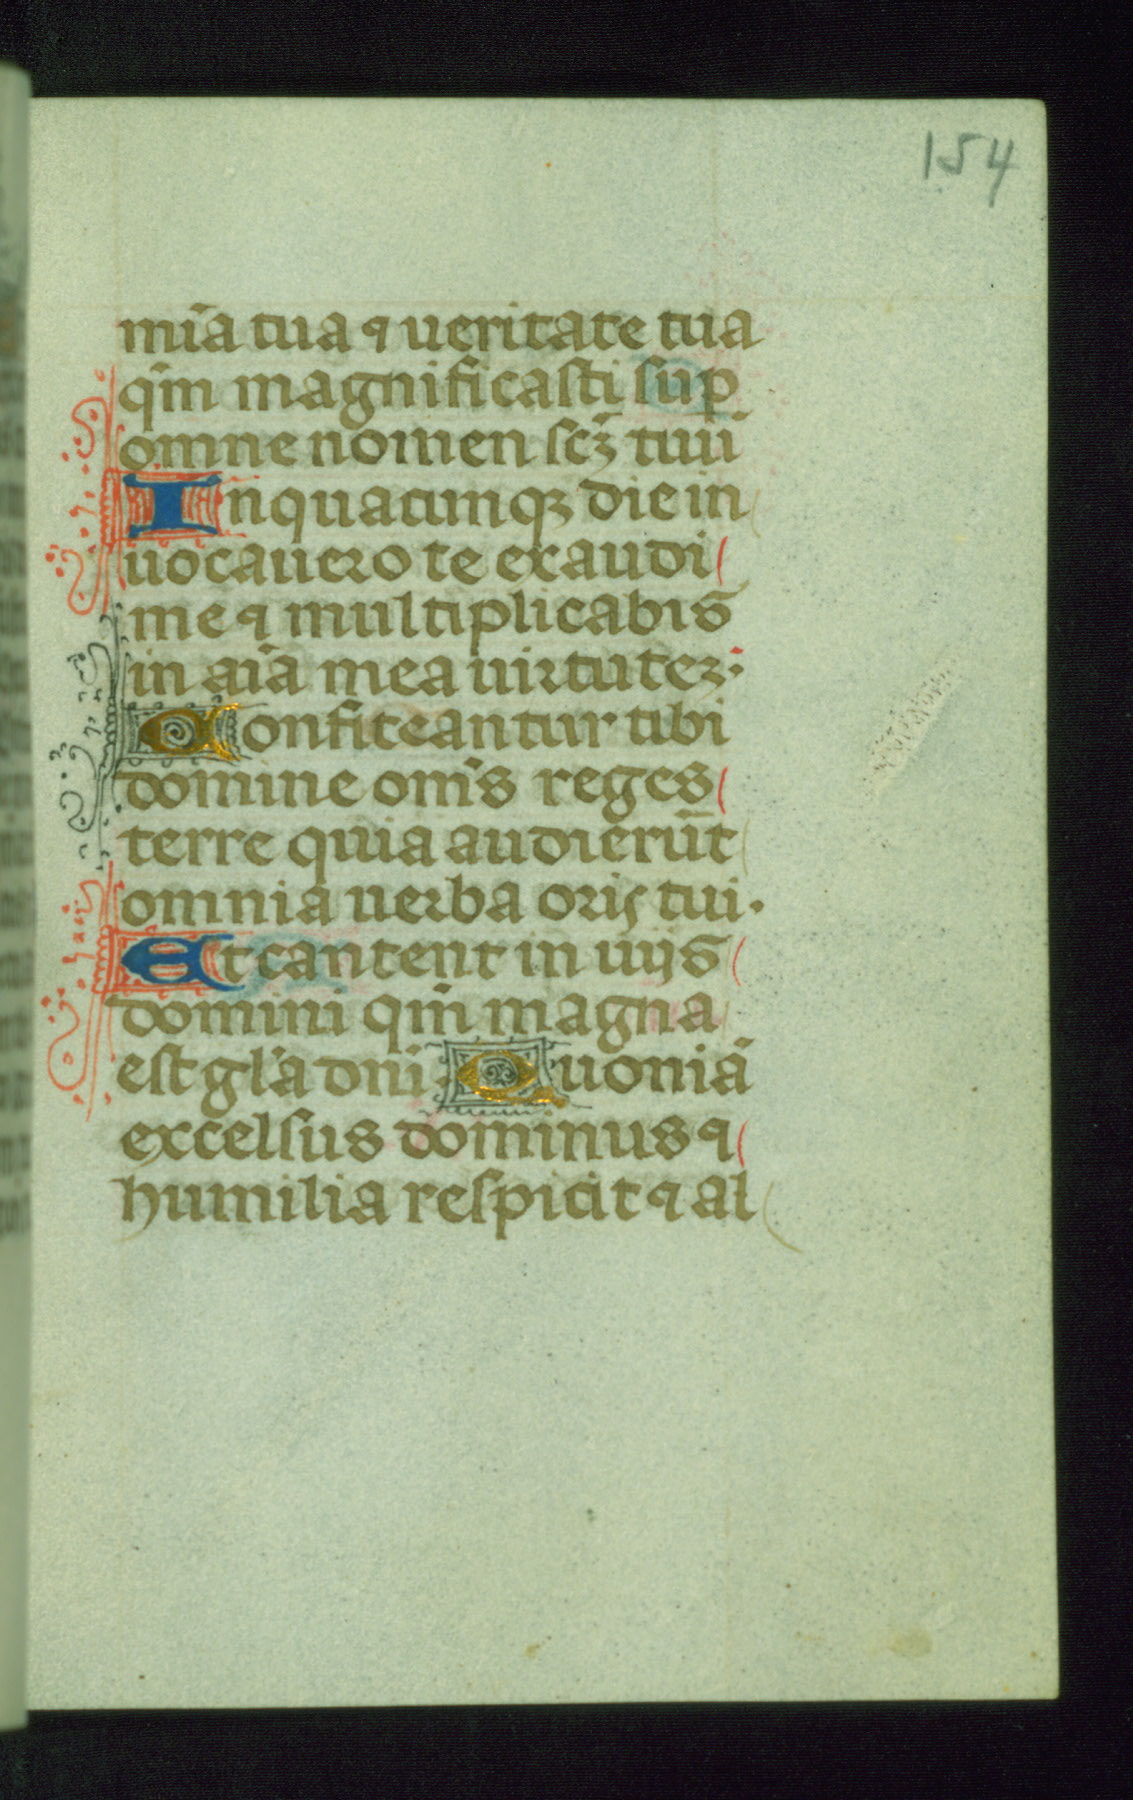 154
mīa tua ⁊ ueritate tua
qm̄ magnificasti sup̄
omne nomen scȝ tuū
In quacumqȝ die in
uocauero te exaudi
me ⁊ multiplicabis
in aīa mea uirtuteȝ·
Confiteantur tibi
domine om̄s reges
terre quia audierūt
omnia uerba oris tui·
Et cantent in uijs
domini qm̄ magna
est gl̄a dnī· Quoniā
excelsus dominus ⁊
humilia respicit ⁊ al